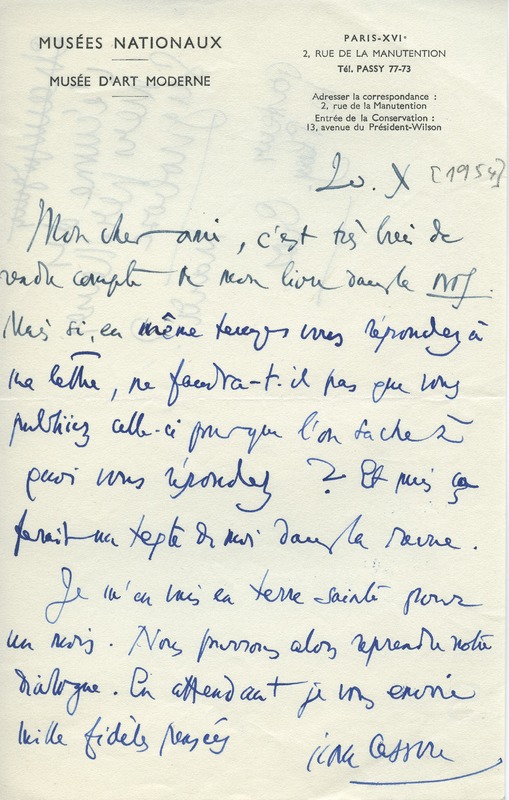 MUSÉES NATIONAUX
MUSÉE D'ART MODERNE
PARIS-XVIe
2, RUE DE LA MANUTENTION
Tél. PASSY 77-73
Adresser la correspondance :
2, rue de la Manutention
Entrée de la Conservation :
13, avenue du Président-Wilson
20. X [1954]
Mon cher ami, c'est très bien de
rendre compte de mon livre dans la NRF.
Mais si, en même temps vous répondez à
ma lettre, ne faudra-t-il pas que vous
publiiez celle-ci pour que l'on sache à
quoi vous répondez ? Et puis ça
ferait un texte de moi dans la revue.
Je m'en vais en terre sainte pour
un mois. Nous pourrons alors reprendre notre
dialogue. En attendant je vous envoie
mille fidèles pensées
Jean Cassou